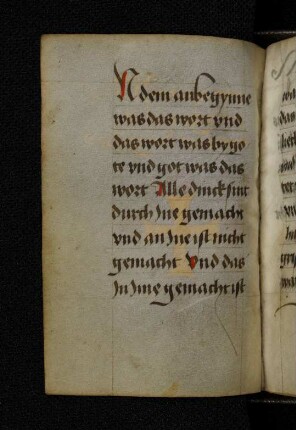 In dem anbegynne
was das wort vnd
das wort was by go
te vnd got was das
wort Alle dinck sint
durch Ine gemacht
vnd an Ine ist nicht
gemacht Vnd das
In Ime gemacht ist